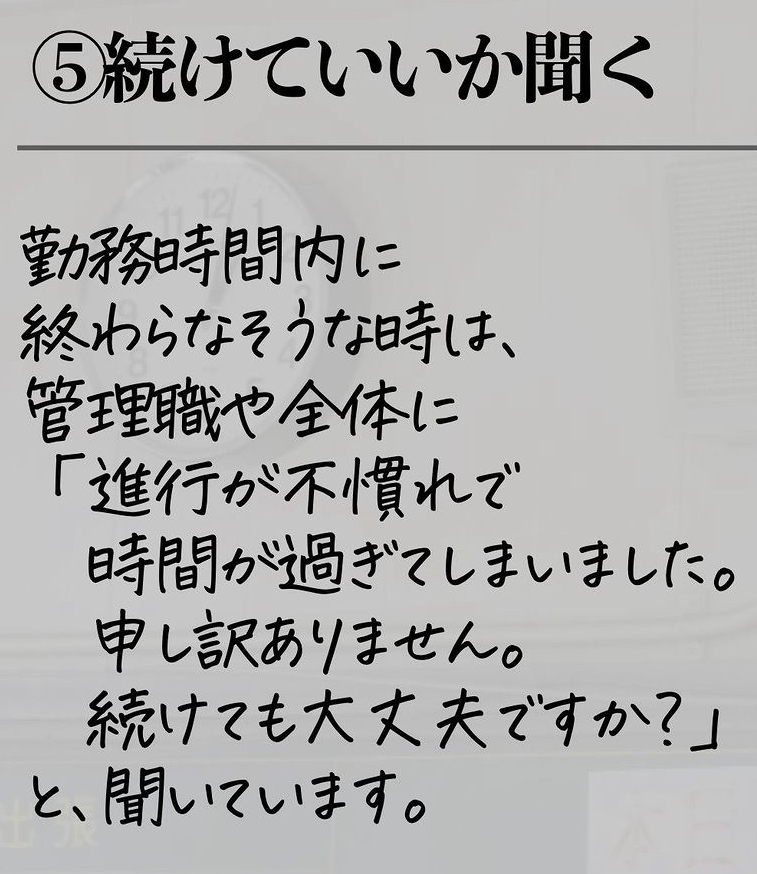 ⑤続けていいか聞く
勤務時間内に
終わらなそうな時は、
管理職や全体に
「進行が不慣れで
時間が過ぎてしまいました。
申し訳ありません。
続けても大丈夫ですか?」
と、聞いています。
12
11
1
3
4
8
9
出張
本日